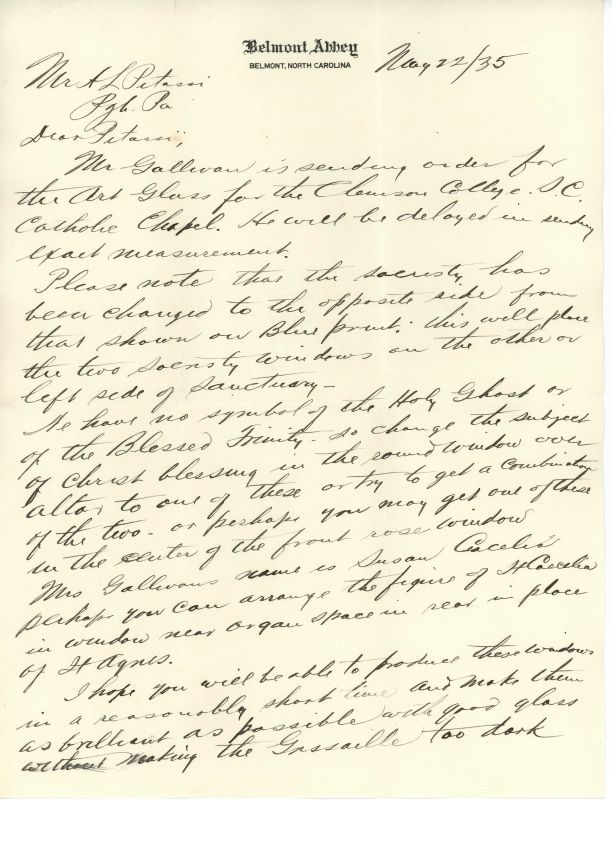 Belmont Abbey
BELMONT, NORTH CAROLINA
May 22/35
Mr A L Pitassi
Pgh. Pa
Dear Pitassi,
Mr Gallivan is sending order for
the Art Glass for the Clemson College S.C.
Catholic Chapel. He will be delayed in sending
exact measurement.
Please note that the sacristy has
been changed to the opposite side from
that shown on Blue print. this will place
the two sacristy windows on the other or
left side of Sanctuary -
We have no symbol of the Holy Ghost or
of the Blessed Trinity - so change the subject
of Christ blessing in the round window over
altar to one of these or try to get a combination
of the two - or perhaps you may get one of these
in the center of the front rose window
Mrs Gallivans name is Susan Cacelia
perhaps you can arrange the figure of St Caecelia
in window near organ space in rear in place
of St Agnes.
I hope you will be able to produce these windows
in a reasonably short time and make them
as brilliant as possible with good glass
without making the Grisaille too dark